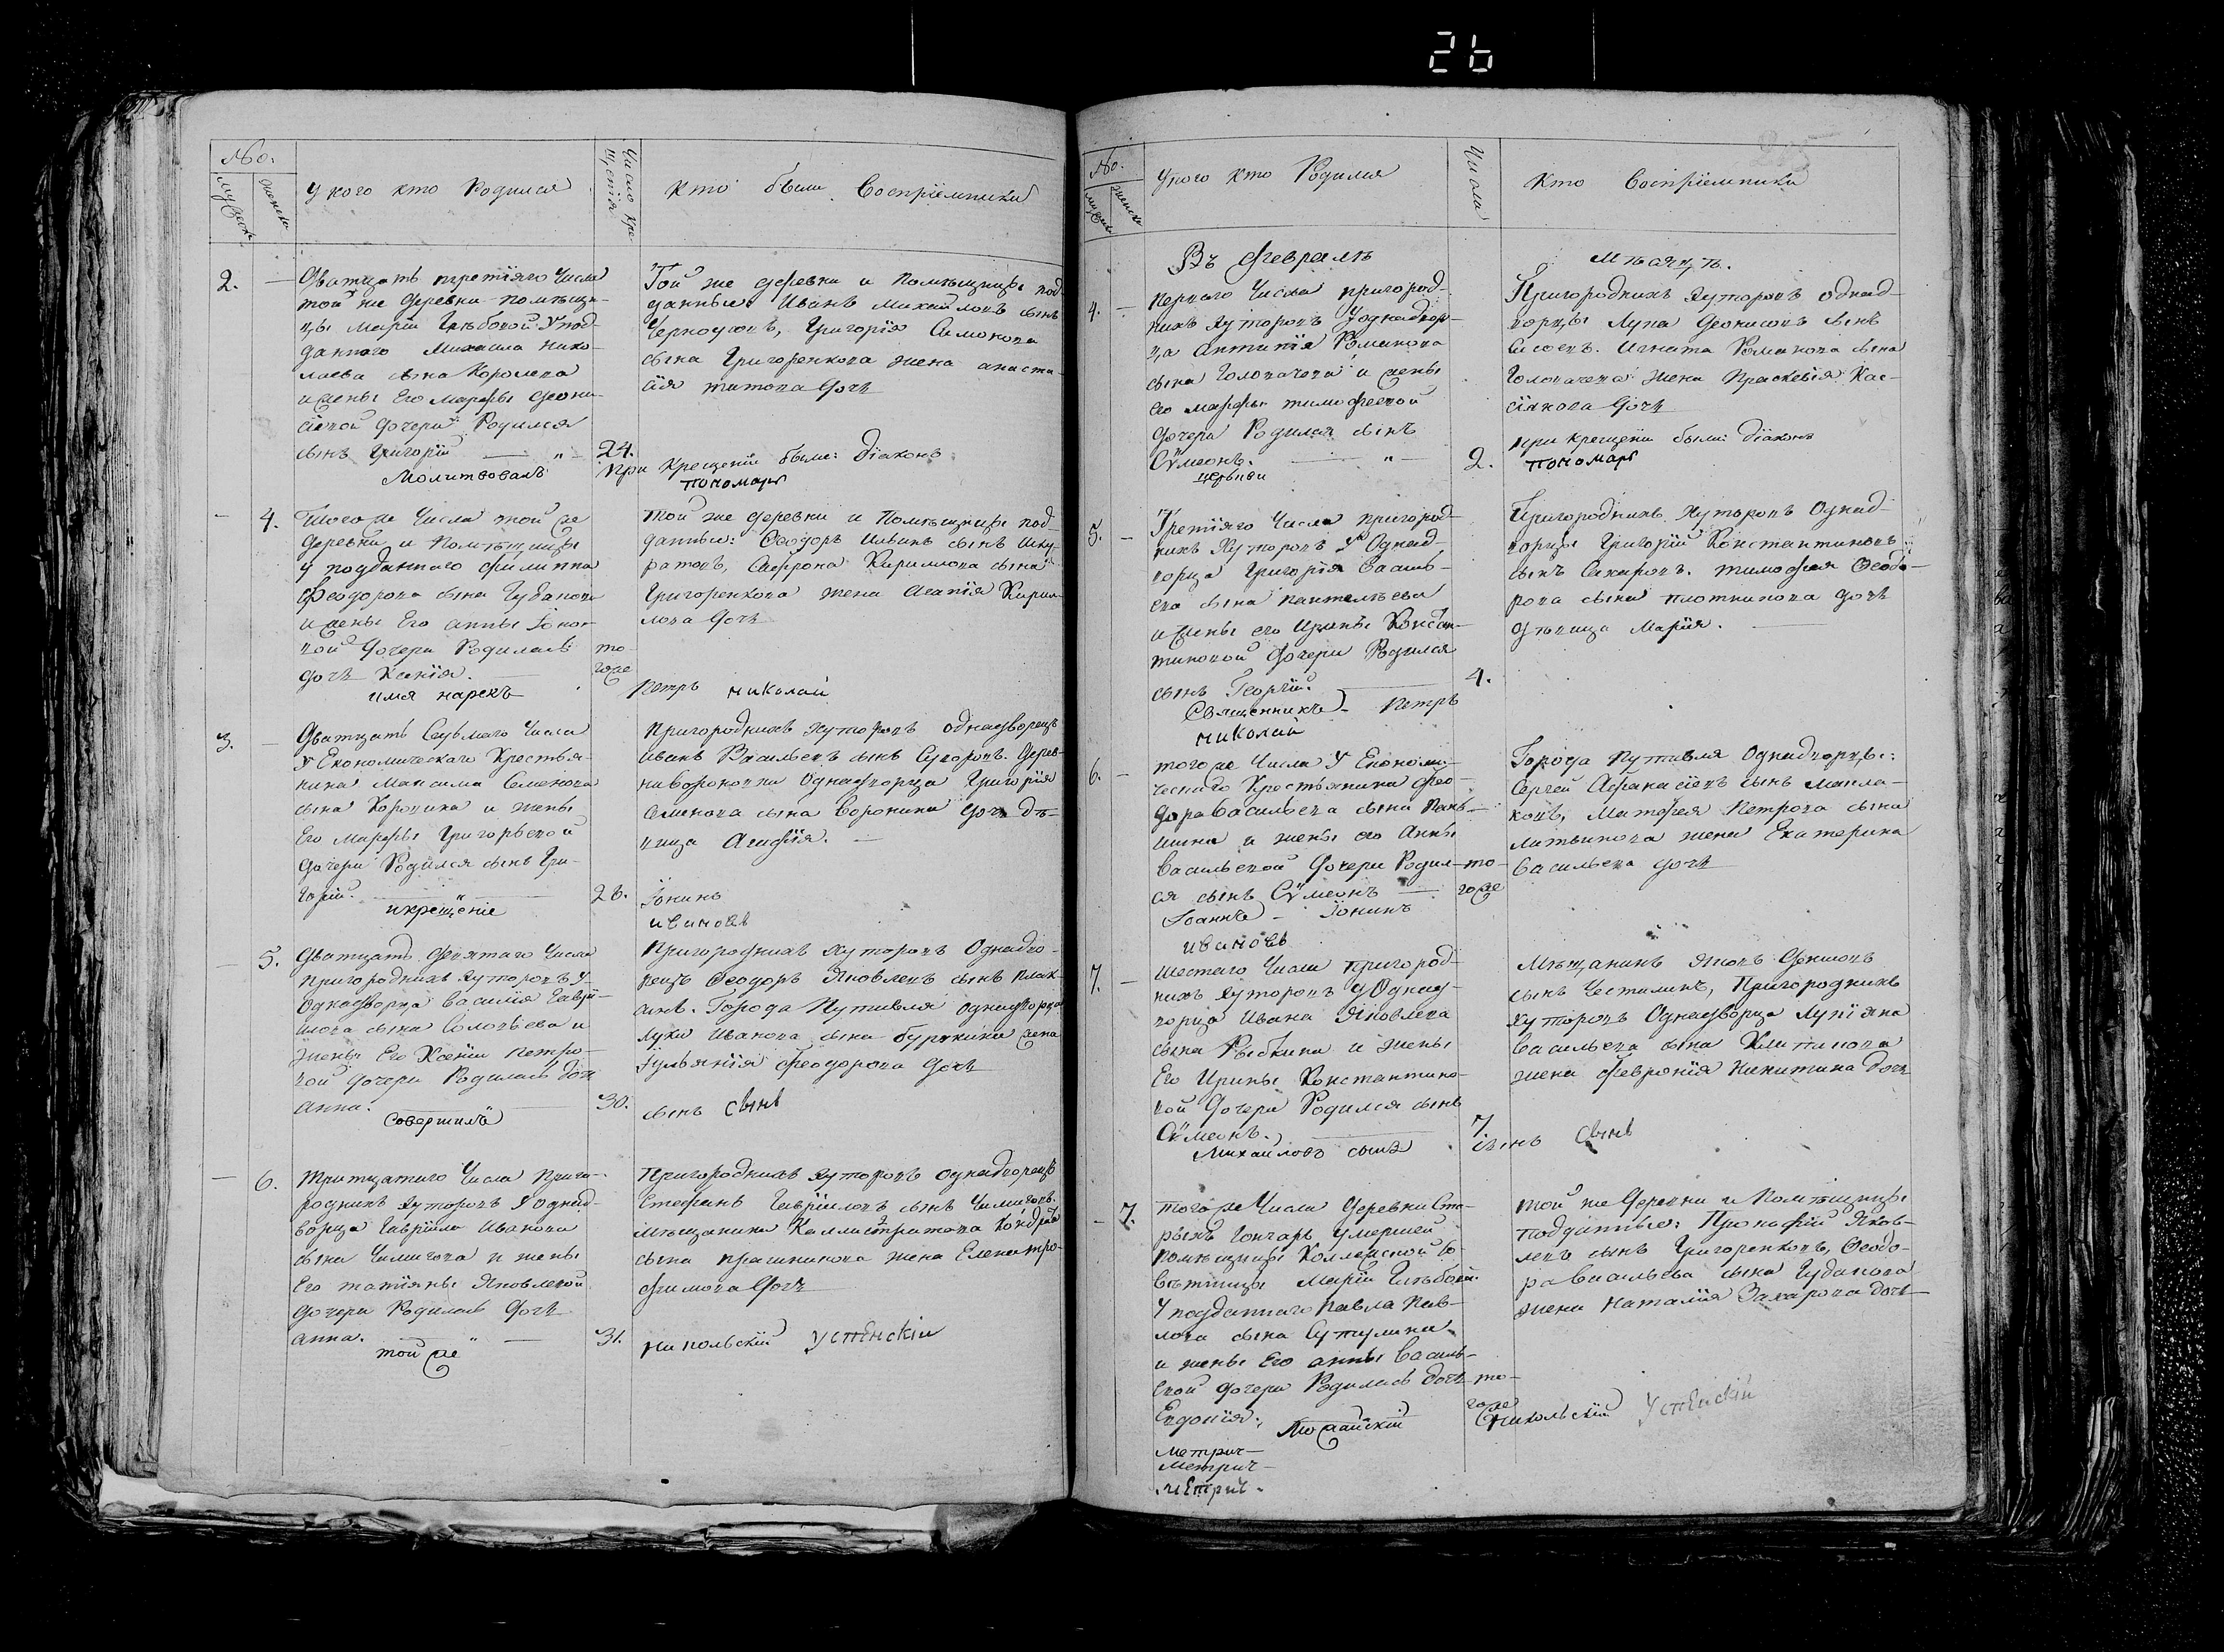 26
No.
мужеск
женск
У кого кто Родился
Число Кре-
щенія
Кто были Воспріемники
2. Дватцать третіяго Числа
той же деревни помѣщи-
цы Маріи Глѣбовой У под-
даннаго Михаила Нико-
лаева сына Королева
и жены Его Марфы Деони-
сіевой дочери Родился
сынъ Григорій 24.
Молитвовалъ
Той же деревни и Помѣщицы под-
данные: Иванъ Михайловъ сынъ
Григорія Симонова
сына Григоренкова жена анаста-
сія титова дочь
При Крещеніи были: Діаконъ
пономарь
4. Тогоже Числа той же
деревни и Помѣщицы
у подданнаго Филиппа
Феодорова сына Губанова
и жены Его анны
вой дочери Родилась
дочь Ксенія. то-
гоже
имя нарекъ
Той же деревни и Помѣщицы под-
данные: Феодоръ Ивановъ сынъ Шку-
ратовъ, Сафрона Кирилова сына
Григоренкова жена Агапія Кирил-
лова дочь
Петръ николай
3. Дватцать Седьмаго Числа
У Економическаго Крестья-
нина Максима Семенова
сына Воронина и жены
Его Марфы Григорьевой
дочери Родился сынъ Гри-
горій. 28.
и крещеніе
Пригороднихъ хуторовъ однодворецъ
Иванъ Васильевъ сынъ Суворовъ. Дерев-
ни вороновки Однодворца Григорія
Семенова сына Воронина дочь дѣ-
вица Агафія.
Іонинъ
ивановъ
5. Дватцать девятаго Числа
Пригороднихъ хуторовъ У
Однодворца Василія Гаврі-
илова сына Соловьева и
жены Его Ксеніи Петро-
вой дочери Родилась дочь
анна. 30.
совершилъ
Пригороднихъ хуторовъ Однодво-
рецъ Феодоръ Яковлевъ сынъ Плак-
синъ. Города Путивля однодворца
Луки Иванова сына бурыкина жена
Іульянія Феодорова дочь
сынъ сынъ
6. Тритцатаго Числа Приго-
роднихъ хуторовъ У однод-
ворца Гавріила Иванова
сына Чилигова и жены
Его татіяны Яковлевой
дочери Родилась дочь
анна. 31.
той же
Пригороднихъ хуторовъ однодворецъ
Стефанъ Гавріиловъ сынъ Чилиговъ.
мѣщанина Каллистратова Кондрата
сына прагникова жена Елена тро-
фимова дочь
никольскій успенскіи
No.
мужеск
женск
У кого кто Родился
Числа
Кто Воспріемники
Въ Февралѣ
Мѣсяцѣ.
4. Перваго Числа пригород-
нихъ хуторовъ У однодвор-
ца Антипія Романова
сына Головачева и жены
его марфы тимофеевой
дочери Родился сынъ
Сѵмеонъ. 2.
церькви
Пригороднихъ хуторовъ однод-
ворцы Лупа Деонисовъ сынъ
Сысоевъ. Игната Романова сына
Головачева жена Праскевія Кас-
сіянова дочь
при крещеніи были: діаконъ
пономарь
5. Третіяго Числа пригород-
нихъ хуторовъ У Однод-
ворца Григорія Василь-
ева сына Пантелѣева
и жены его Ирины Констан-
тиновой дочери Родился
сынъ Георгій. 4.
Священникъ Петръ
николай
Пригороднихъ хуторовъ Однод-
ворцы Григорій Константиновъ
сынъ Сахаровъ. тимофея Феодо-
рова сына плотникова дочь
дѣвица Марія.
6. того же Числа У Економи-
ческаго Крестьянина Фео-
дора Васильева сына Пань-
шина и жены его Анны
Васильевой дочери Родил-
ся сынъ Сѵмеонъ то-
гоже
Іоаннъ Іонинъ
ивановъ
Города Путивля Однодворцы:
Сергей Афанасіевъ сынъ Макла-
ковъ, Матфея Петрова сына
литвинова жена Екатерина
васильева дочь
7. Шестаго Числа Пригород-
нихъ хуторовъ У Однод-
ворца Ивана Яковлева
сына Рыбкина и жены
Его Ирины Константино-
вой дочери Родился сынъ
Сѵмеонъ. 7.
Михайловъ сынъ
Мѣщанинъ Яковъ
сынъ Пригороднихъ
хуторовъ Однодворца Лукіяна
Васильева сына
жена Февронія Никитина дочь
сынъ сынъ
7. Тогоже Числа деревни Ста-
рыхъ Гончаръ умершей
помѣщицы Коллежской Со-
вѣтницы Маріи Глѣбовой
У подданнаго Павла Пав-
лова сына Сутулина
и жены Его анны Василь-
евой дочери Родилась дочь то-
гоже
Евдокія.
Можайскій
Той же деревни и Помѣщицы
подданные: Прокофій Яков-
левъ сынъ Григоренковъ, Феодо-
ра Васильева сына Губанова
жена Наталія Захарова дочь
никольскій Успенскій
Метрич-
Метрич-
метрич-